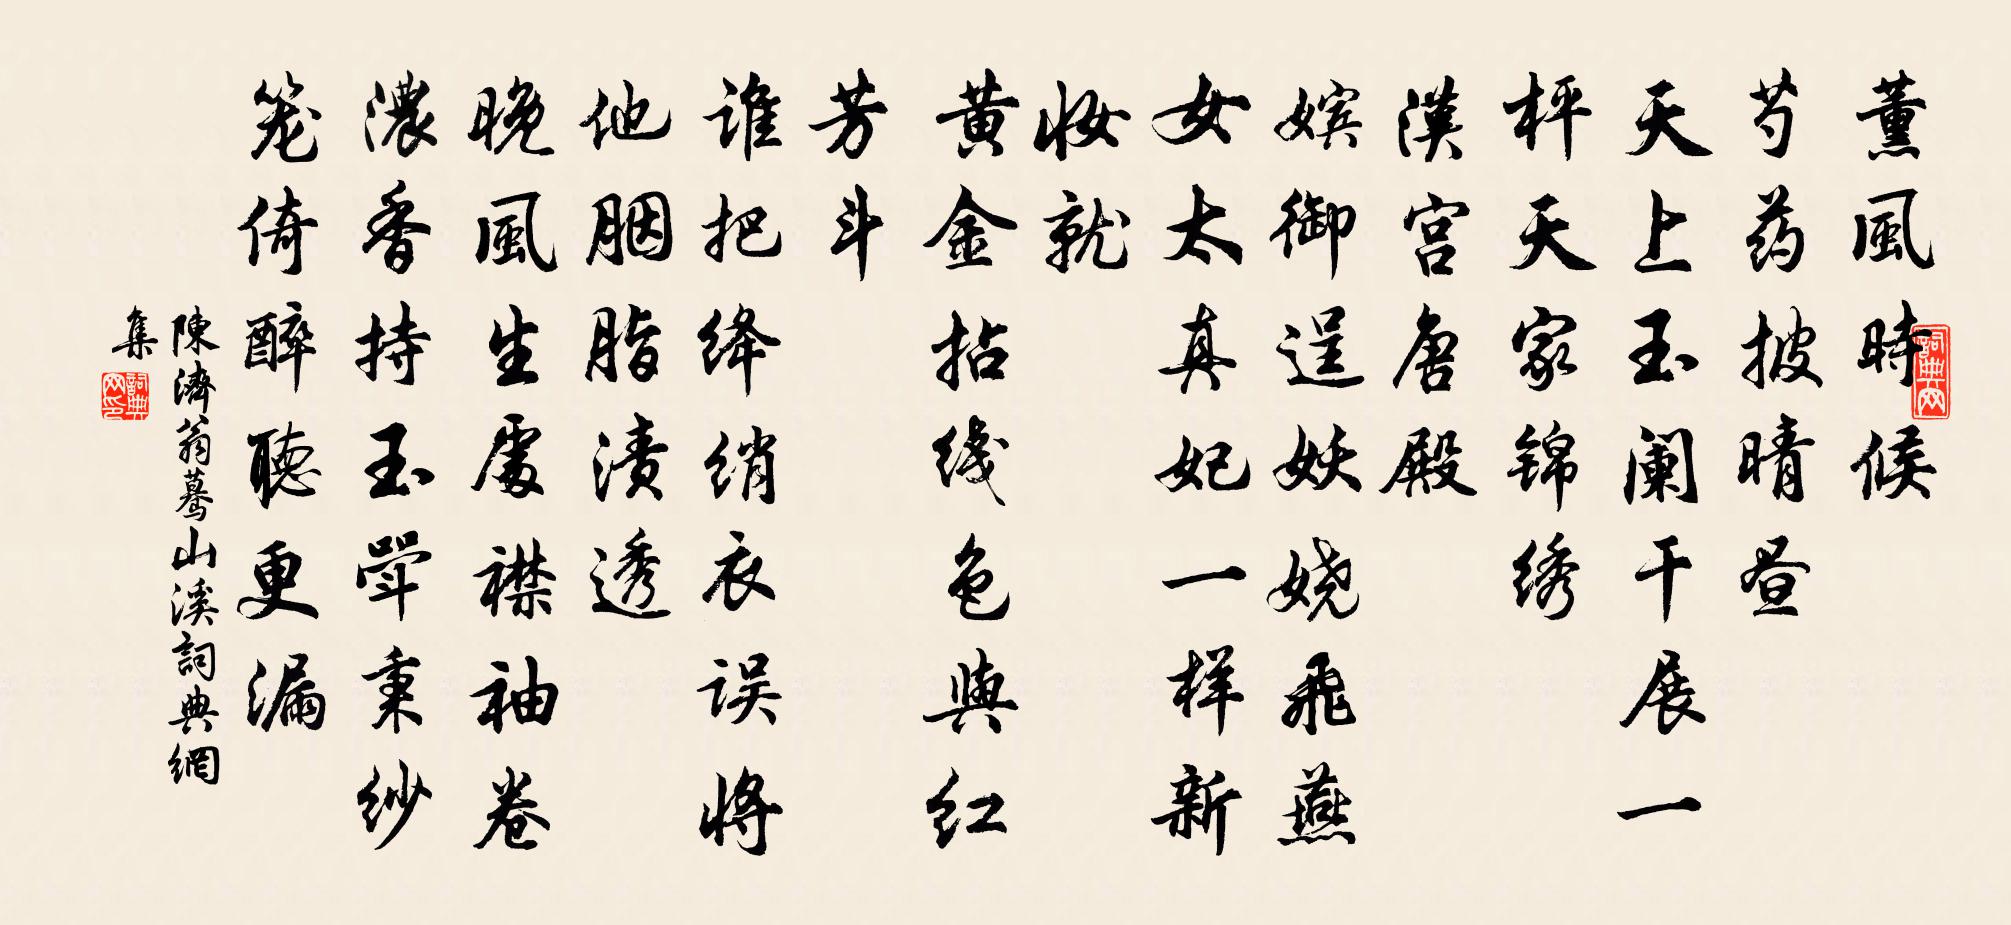 薰風時候
芍药披晴昼
天上玉阑干展一
枰天家锦绣
漢宫唐殿
嫔御逞妖娆飛燕
女太真妃一样新
妆就
黄金拈线色與红
芳斗
谁把绛绡衣误将
他胭脂渍透
晚風生處襟袖卷
濃香持玉斝秉纱
笼倚醉聽更漏
陳濟翁驀山溪詞典網
集
詞典网
詞典网印